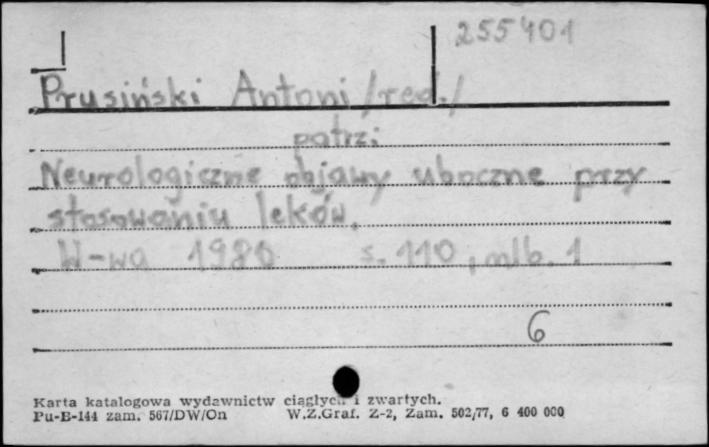 255401
Prusiński Antoni /red./
patrz:
Neurologiczne objawy uboczne przy
stosowaniu leków.
W-wa 1980 s. 110, nlb. 1
6
Karta katalogowa wydawnictw ciągłych i zwartych.
Pu-B-144 zam. 567/DW/On W.Z.Graf. Z-2, Zam. 502/77, 6 400 000